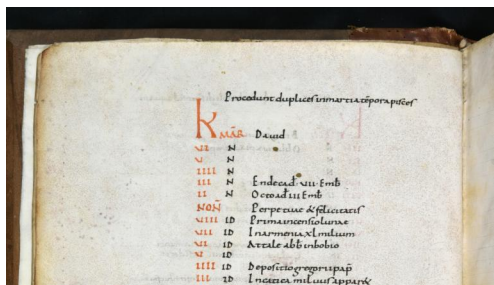 Procedunt duplices in martia tempora pisces
K MAR David
VI N
V N
IIII N
III N Endecad. VII. Emb
II N Octoad III Emb
NON Perpetuae & felicitatis
VIII ID Prima incensio lunae
VII ID In armenia xl milium
VI ID Attale abb in bobio
V ID
IIII ID Depositio gregorii pap
III ID